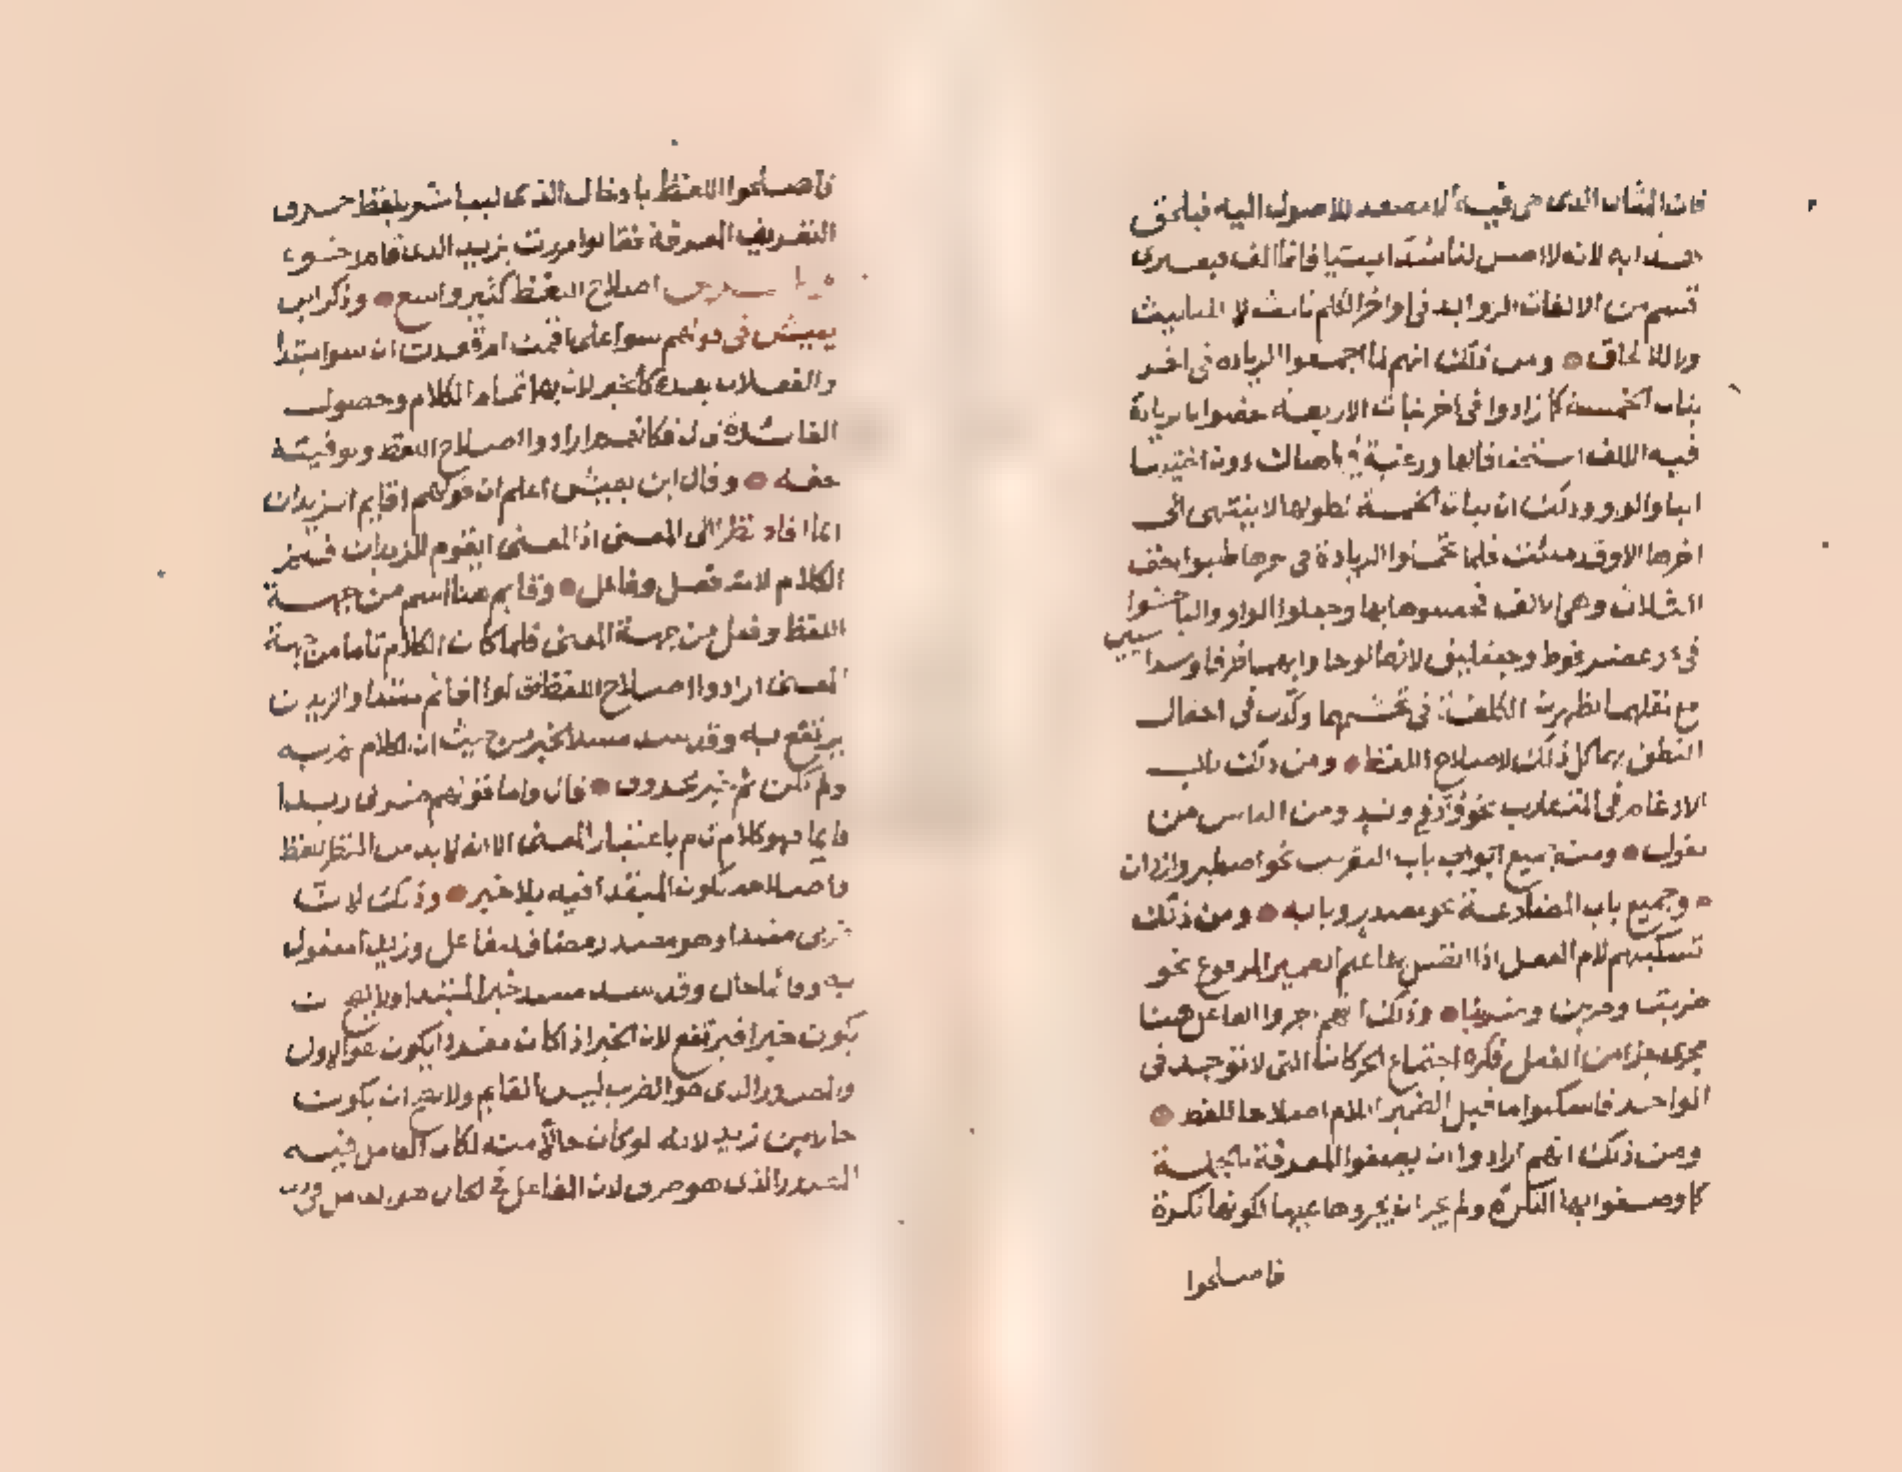 فان الشان الذى هى فيه لا مصعد للاصول اليه فيلحق
هذا به لانه لا اصل لنا سداسيا فانما الف قبعثرى
قسم من الالفات الزوايد فى اواخر الكلم ثالث لا للتانيث
ولا للالحاق ومن ذلك انهم لما اجمعوا الزياده فى اخر
بنات الخمسة كما زادوا فى اخر بنات الاربعه خصوا بالزيادة
فيه الالف استخفافا لها ورغبة فيها هناك دون اختيها
اليا والواو وذلك ان بنات الخمسة لطولها لا ينتهى الى
اخرها الا وقد ملت فلما تحملوا الزيادة فى اخرها طلبوا اخف
الثلاث وهى الالف فخصوها بها وجعلوا الواو واليا حشوا
فى عضرفوط وجعفليق لانهما لو جا وا بهما طرفا وسداسيين
مع ثقلهما لظهرت الكلفة فى تجشمهما وكدت فى احتمال
النطق بهما كل ذلك لاصلاح اللفظ ومن ذلك باب
الادغام فى المتقارب نحو ود فى وتد ومن الناس من
يقول ومنه جميع ابواب باب التقريب نحو اصطبر وازدان
وجميع باب المضارعة نحو مصدر وبابه ومن ذلك
تسكينهم لام الفعل اذا اتصل بها علم الضمير المرفوع نحو
ضربت وضربن وضربنا وذلك انهم اجروا الفاعل هنا
مجرى جزء من الفعل فكره اجتماع الحركات التى لا توجد فى
الواحد فاسكنوا ما قبل الضمير اللام اصلاحا للفظ
ومن ذلك انهم ارادوا ان يصفوا المعرفة بالجملة
كما وصفوا بها النكرة ولم يجز ان يجروها عليها لكونها نكرة
فاصلحوا
فاصلحوا اللفظ بادخال الذى ليباشر بلفظ حرف
التعريف المعرفة فقالوا مررت بزيد الذى قام اخوه
اصلاح اللفظ كثير واسع وذكر ابن
يعيش فى قولهم سواء على اقمت ام قعدت ان سوا مبتدا
والفعلان بعده كالخبر لان بهما تمام الكلام وحصول
الفائدة قال فكانهم ارادوا اصلاح اللفظ وتوفيته
حقه وقال ابن يعيش اعلم ان قولهم اقايم الزيدان
انما افاد نظرا الى المعنى اذ المعنى ايقوم الزيدان فتم
الكلام لانه فعل وفاعل وقايم هنا اسم من جهة
اللفظ وفعل من جهة المعنى فلما كان الكلام تاما من جهة
المعنى ارادوا اصلاح اللفظ فقالوا اقائم مبتدا والزيدان
يرتفع به وقد سد مسد الخبر من حيث ان الكلام تم به
ولم يكن ثم خبر محذوف قال واما قولهم ضربى زيدا
قايما فهو كلام تام باعتبار المعنى الا انه لا بد من النظر للفظ
واصلاحه لكون المبتدا فيه بلا خبر وذلك لان
ضربى مبتدا وهو مصدر مضاف للفاعل وزيدا مفعول
به وقائما حال وقد سد مسد خبر المبتدا ولا يصح ان
يكون خبرا فيرتفع لان الخبر اذا كان مفردا يكون هو الاول
والمصدر الذى هو الضرب ليس القايم ولا يصح ان يكون
حالا من زيد لانه لو كان حالا منه لكان العامل فيه
المصدر الذى هو ضربى لان العامل فى الحال هو العامل فى ذى